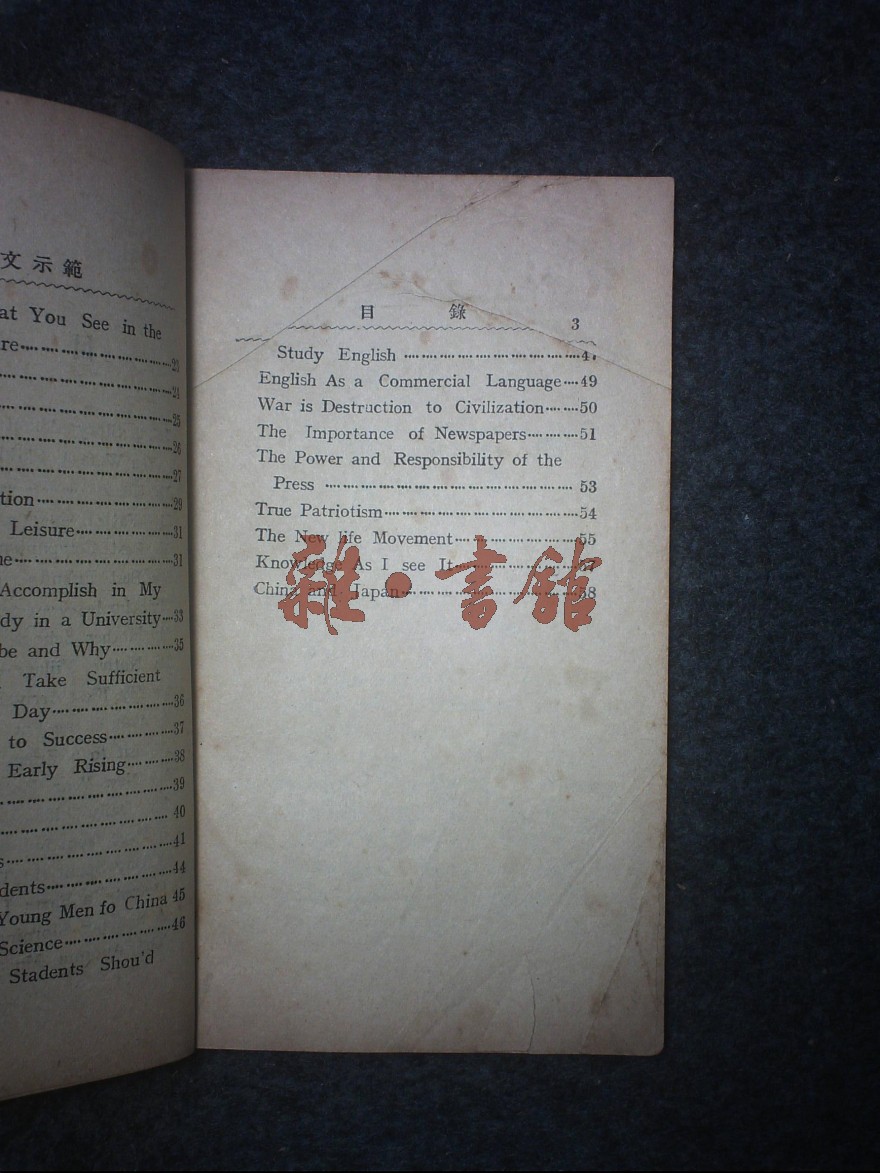 文示範
at You See in the
re 23
24
25
26
27
tion 29
Leisure 31
ne 31
Accomplish in My
dy in a University 33
be and Why 35
Take Sufficient
Day 36
to Success 37
Early Rising 38
39
40
s 41
dents 44
Young Men fo China 45
Science 46
Stadents Shou'd
目 錄 3
Study English
English As a Commercial Language 49
War is Destruction to Civilization 50
The Importance of Newspapers 51
The Power and Responsibility of the
Press 53
True Patriotism 54
The New life Movement 55
Knowledge As I see It 57
China and Japan 58
雜·書館